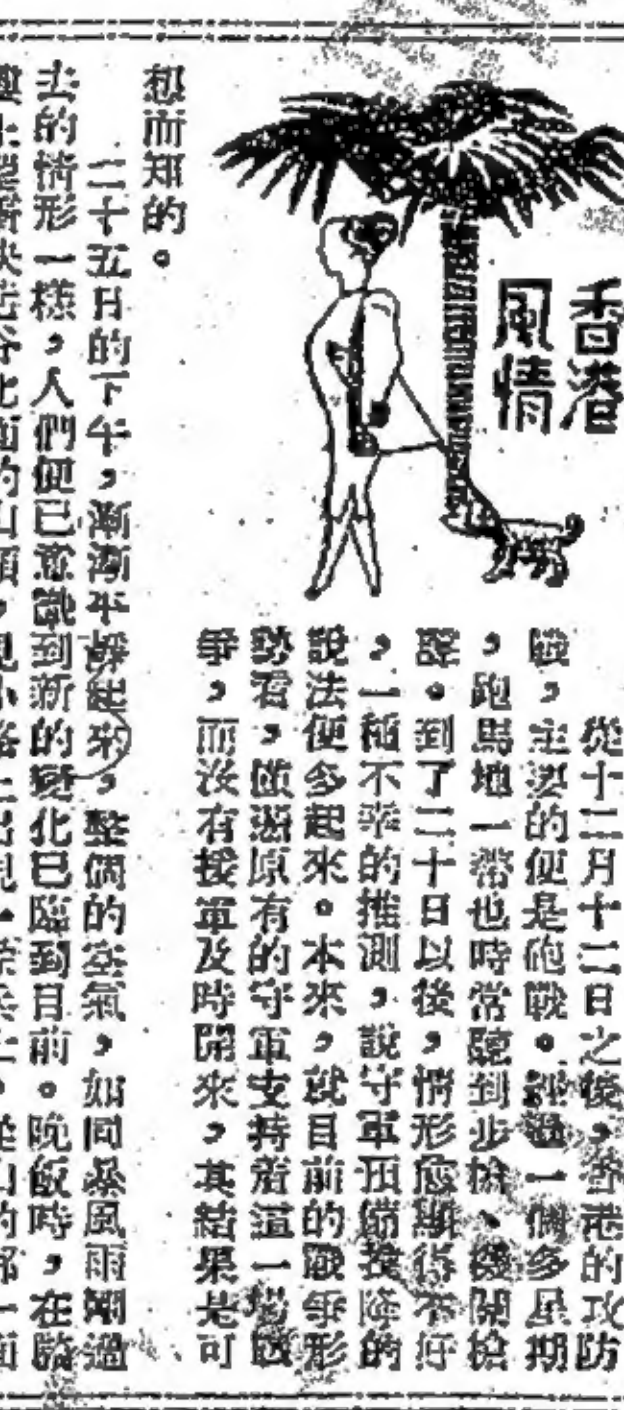 香港
風情
從十二月十二日之後，香港的攻防
戰，主要的便是砲戰。經過一個多星期
，跑馬地一帶也時常聽到步槍、機關槍
聲。到了二十日以後，情形愈顯得不好
，一種不幸的推測，說守軍預備投降的
說法便多起來。本來，就目前的戰爭形
勢看，僅憑原有的守軍支持着這一場戰
爭，而沒有援軍及時開來，其結果是可
想而知的。
二十五日的下午，漸漸平靜起來，整個的空氣，如同暴風雨剛過
去的情形一樣，人們便已意識到新的變化已臨到目前。晚飯時，在臨